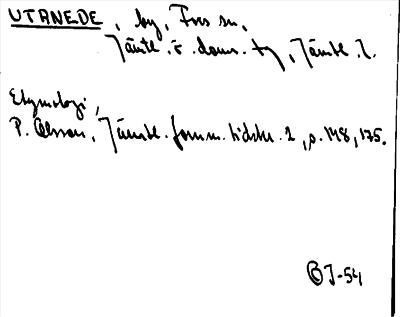 UTANEDE, by, Fors sn,
Jämtl. ö. doms. tg, Jämtl. l.
Etymologi,
P. Olsson, Jämtl. fornm. tidskr. 2, s. 148, 175.
J-54